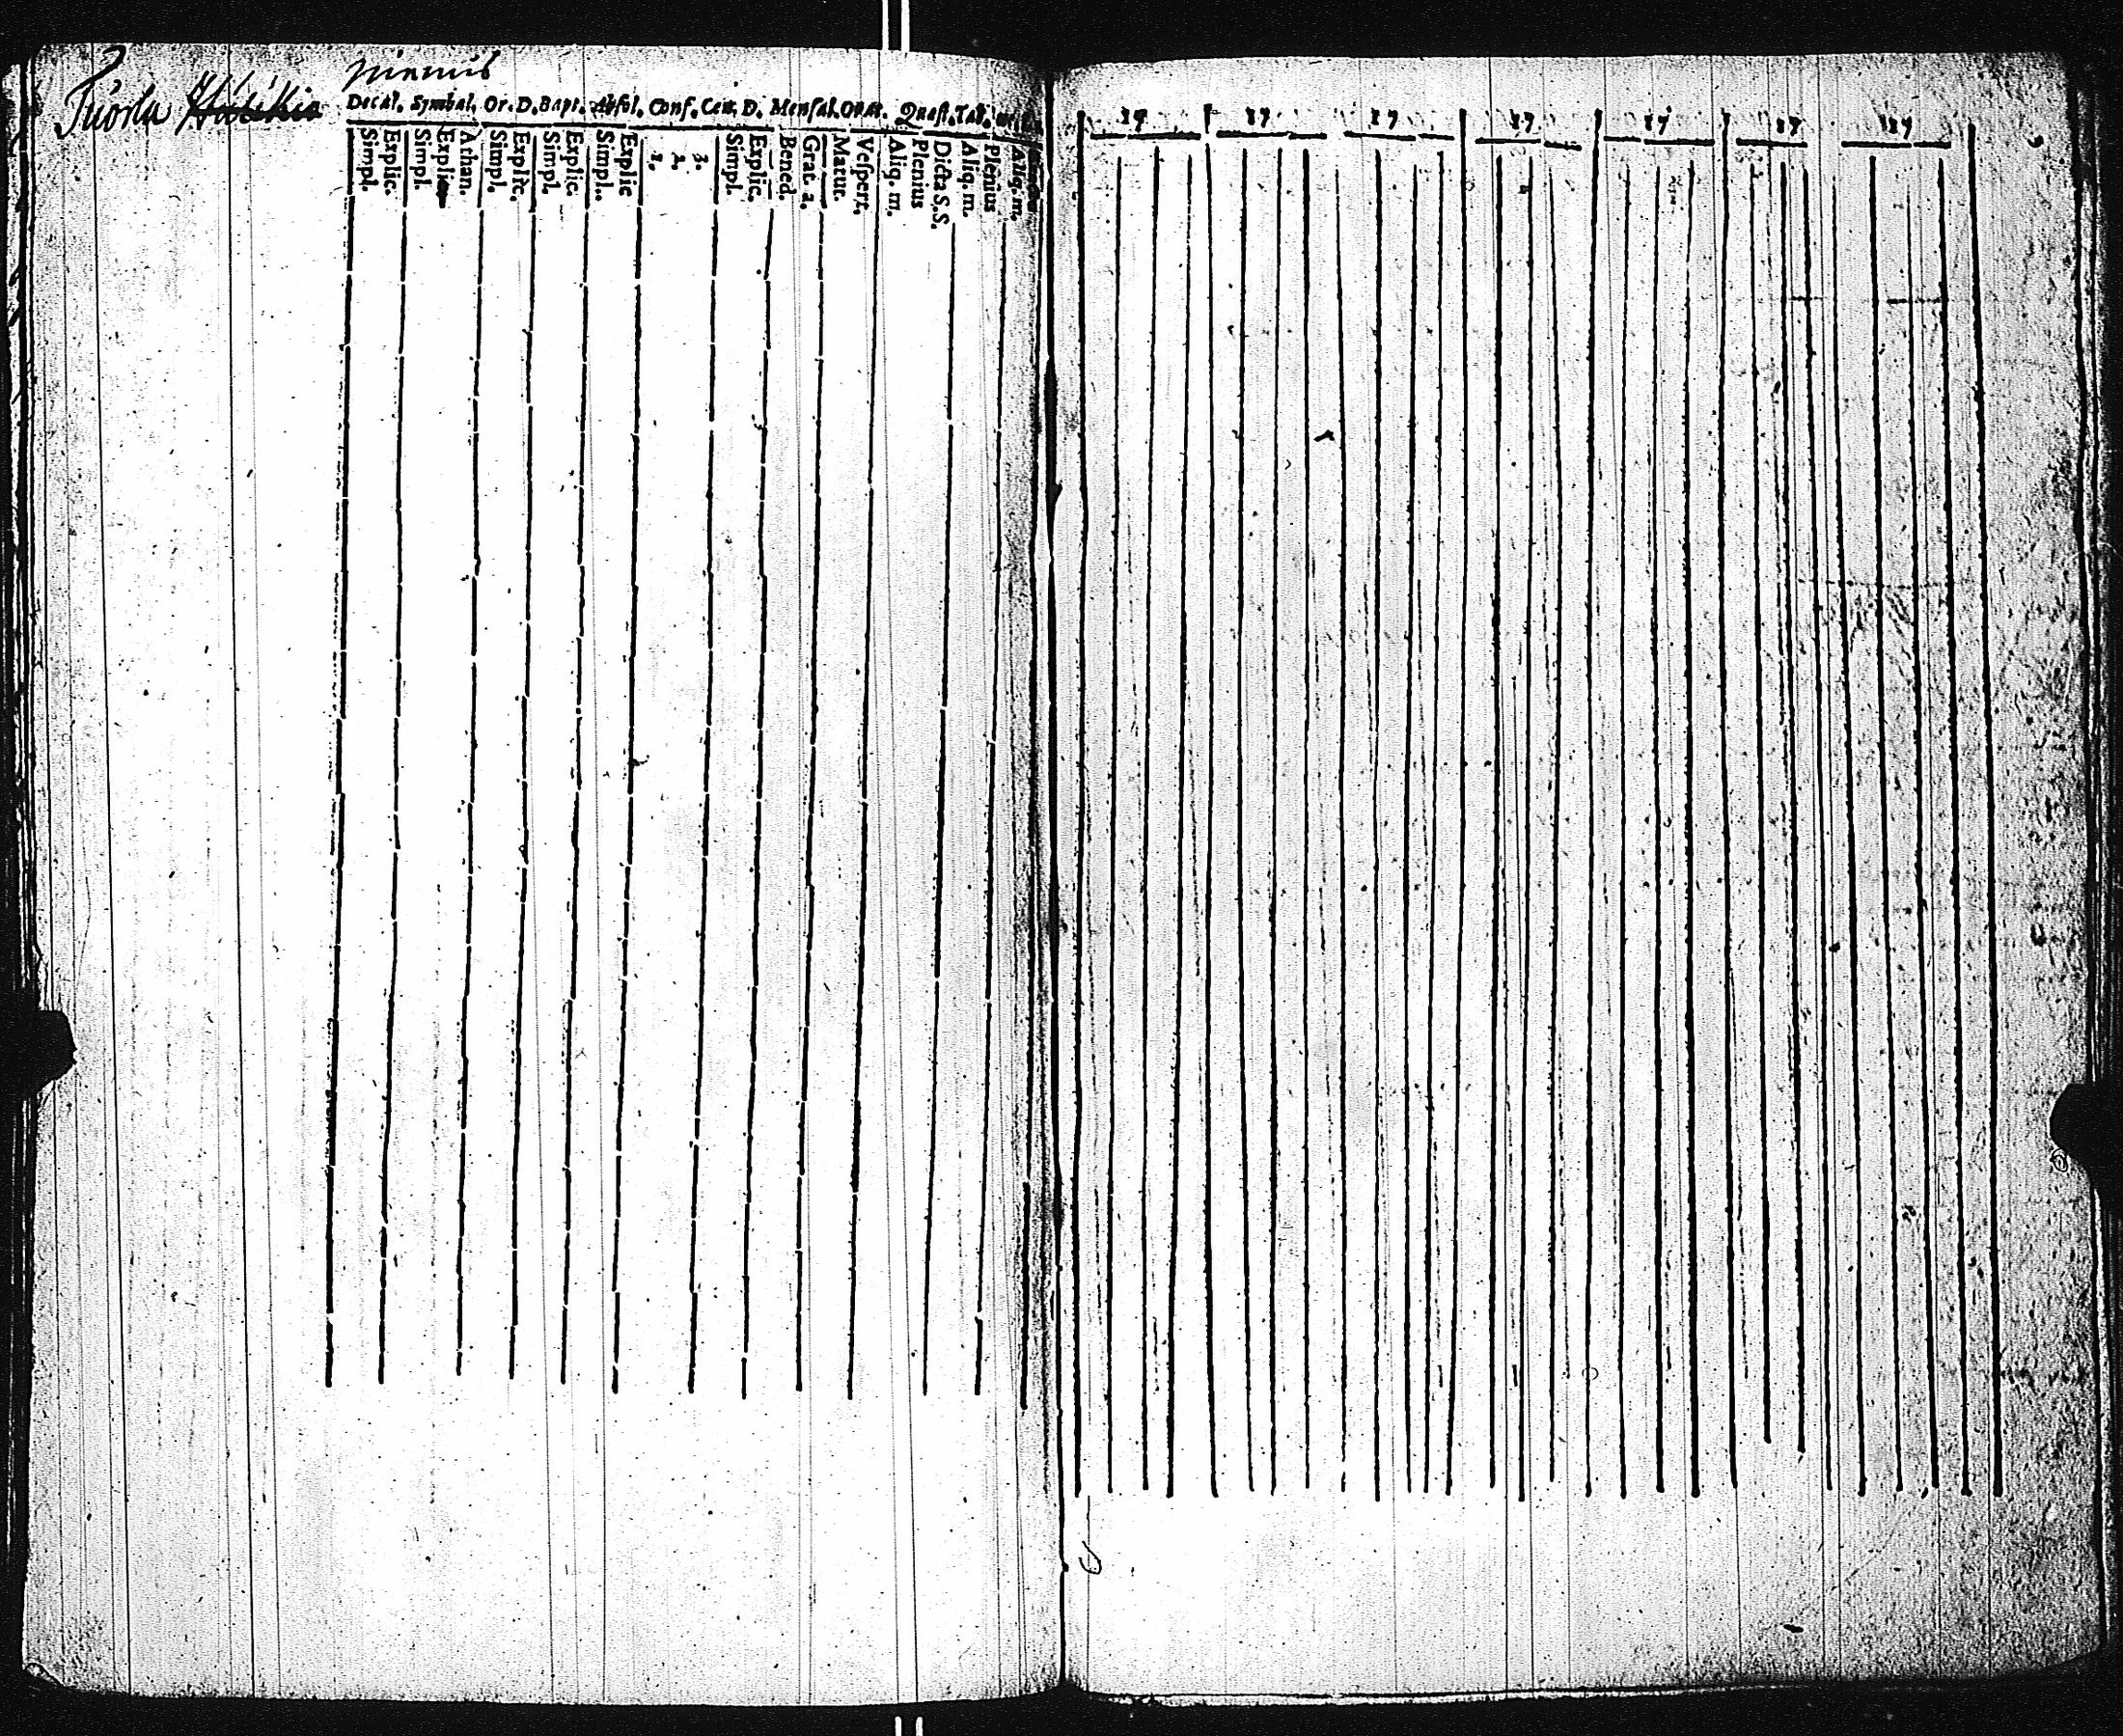 niemis
Tuorla
Decal. Symbol. Or. D. Bapt. Absol. Conf. Cœn. D. Mensal. Orat. Quæst. Tab.
Simpl.
Explic.
Simpl.
Explic.
Athan.
Simpl.
Explic.
Simpl.
Explic.
Simpl.
Explic
1.
2.
3.
Simpl.
Explic.
Bened.
Grat. a.
Matut.
Vespert.
Aliq. m.
Plenius
Dicta S. S.
Aliq. m.
Plenius
Aliq. m.
17 17 17 17 17 17 17